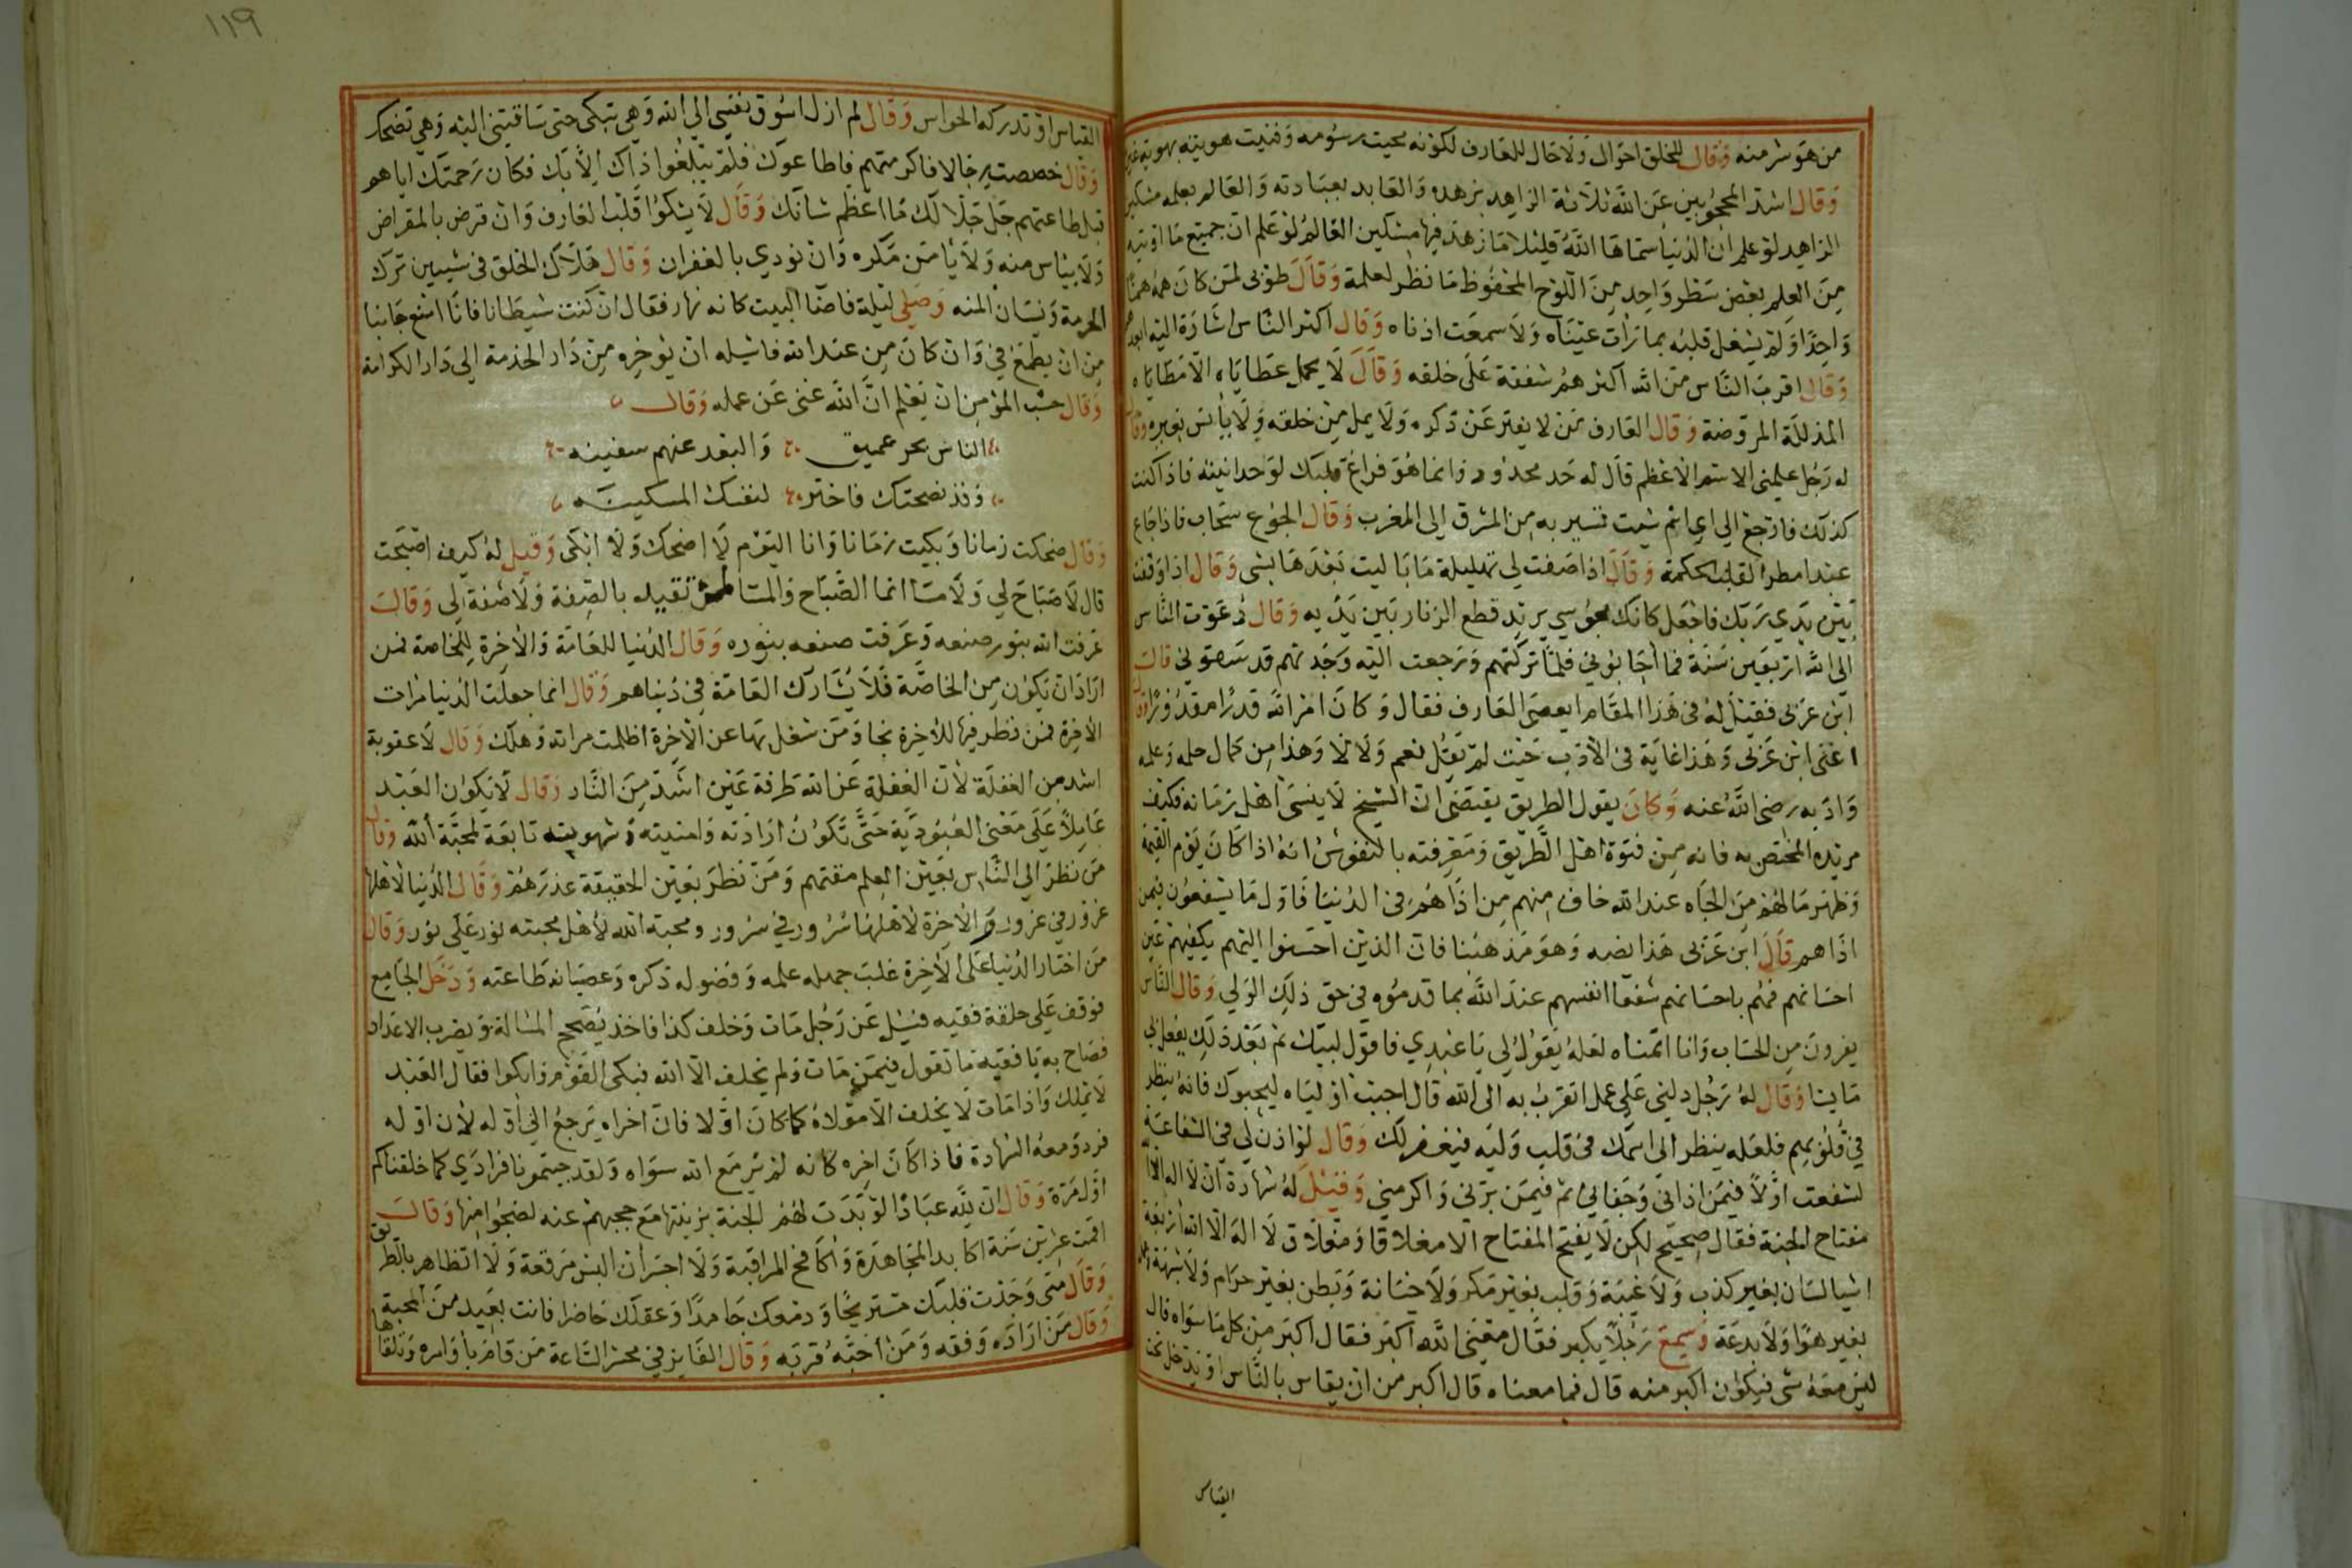 من هو شر منه وقال للخلق احوال ولا حال للعارف لكونه محيت رسومه وفنيت هويته بهوية غير
وقال اشد المحجوبين عن الله ثلاثة الزاهد بزهده والعابد بعبادته والعالم بعلمه مسكين
الزاهد لو علم ان الدنيا سماها الله قليلا ما زهد فيها مسكين العالم لو علم ان جميع ما اوتيه
من العلم بعض سطر واحد من اللوح المحفوظ ما نظر لعلمه وقال طوبى لمن كان همه هما
واحدا ولم يشغل قلبه بما رأت عيناه ولا سمعت اذناه وقال اكثر الناس اشارة اليه ابعدهم
وقال اقرب الناس من الله اكثرهم شفقة على خلقه وقال لا يحمل عطاياه الا مطاياه
المذللة المروضة وقال العارف من لا يفتر عن ذكره ولا يمل من خلقه ولا يأنس بغيره وقال
له رجل علمني الاسم الاعظم قال له حد محدود وانما هو فراغ قلبك لوحدانيته فاذا كنت
كذلك فارجع الى اي اسم شيت تسير به من المشرق الى المغرب وقال الجوع سحاب فاذا جاع
عبد امطر القلب الحكمة وقال اذا صفت لي تهليلة ما باليت بعدها بشي وقال اذا وقفت
بين يدي ربك فاجعل كانك مجوسي يريد قطع الزنار بين يديه وقال دعوت الناس
الى الله اربعين سنة فما اجابوني فلما تركتهم ورجعت اليه وجدتهم قد سبقوني قال
ابن عربي فقيل له في هذا المقام ايعصى العارف فقال وكان امر الله قدرا مقدورا قال
اعني ابن عربي وهذا غاية في الادب حيث لم يقل نعم ولا لا وهذا من كمال حاله وعلمه
وادبه رضي الله عنه وكان يقول الطريق يقتضي ان الشيخ لا ينسى اهل زمانه فكيف
مريده المختص به فانه من فتوة اهل الطريق ومعرفته بالنفوس انه اذا كان يوم القيمة
وظهر ما لهم من الجاه عند الله خاف منهم من اذاهم في الدنيا فاول ما يشفعون فيمن
اذاهم قال ابن عربي هذا نصه وهو مذهبنا فان الذين احسنوا اليهم يكفيهم عين
احسانهم فهم باحسانهم شفعا انفسهم عند الله بما قدموه في حق ذلك الولي وقال الناس
يفرون من الحساب وانا اتمناه لعله يقول لي يا عبدي فاقول لبيك ثم بعد ذلك يفعل بي
ما يشا وقال له رجل دلني على عمل اتقرب به الى الله قال احبب اولياه ليحبوك فانه ينظر
في قلوبهم فلعله ينظر الى اسمك في قلب وليه فيغفر لك وقال لو اذن لي في الشفاعة
لشفعت اولا فيمن اذاني وجفاني ثم فيمن برني واكرمني وقيل له شهادة ان لا اله الا الله
مفتاح الجنة فقال صحيح لكن لا يفتح المفتاح الا مغلاقا ومغلاق لا اله الا الله اربعة
اشيا لسان بغير كذب ولا غيبة وقلب بغير مكر ولا خيانة وبطن بغير حرام ولا شبهة وعمل
بغير هوا ولا بدعة وسمع رجلا يكبر فقال معنى الله اكبر فقال اكبر من كل ما سواه قال
ليس معه شي فيكون اكبر منه قال فما معناه قال اكبر من ان يقاس بالناس او يدخل تحت
القياس
١١٩
القياس او تدركه الحواس وقال لم ازل اسوق نفسي الى الله وهي تبكي حتى ساقتني اليه وهي تضحك
وقال خصصت رجالا فاكرمتهم فاطاعوك فلم يبلغوا ذاك الا بك فكان رحمتك اياهم
قبل طاعتهم جل جلالك ما اعظم شانك وقال لا يشكوا قلب العارف وان قرض بالمقراض
ولا ييأس منه ولا يأمن مكره وان نودي بالغفران وقال هلاك الخلق في شيين ترك
الحرمة ونسيان المنه وصلى ليلة فاضا البيت كانه نهار فقال ان كنت شيطانا فانا امنع جانبا
من ان يطمع في وان كان من عند الله فاسيله ان يوخره من دار الخدمة الى دار الكرامة
وقال حسب المؤمن ان يعلم ان الله غني عن عمله وقال
الناس بحر عميق والبعد عنهم سفينه
وقد نصحتك فاختر لنفسك المسكينه
وقال ضحكت زمانا وبكيت زمانا وانا اليوم لا اضحك ولا ابكي وقيل له كيف اصبحت
قال لا صباح لي ولا مسا انما الصباح والمسا لمن تقيد بالصفة ولا صفة لي وقال
عرفت الله بنور صنعه وعرفت صنعه بنوره وقال الدنيا للعامة والاخرة للخاصة فمن
اراد ان يكون من الخاصة فلا يشارك العامة في دنياهم وقال انما جعلت الدنيا مرات
الاخرة فمن نظر فيها للاخرة نجا ومن شغل بها عن الاخرة اظلمت مراته وهلك وقال لا عقوبة
اشد من الغفلة لان الغفلة عن الله طرفة عين اشد من النار وقال لا يكون العبد
عاملا على معنى العبودية حتى تكون ارادته وامنيته وشهوته تابعة لمحبة الله وقال
من نظر الى الناس بعين العلم مقتهم ومن نظر بعين الحقيقة عذرهم وقال الدنيا لاهلها
غرور في غرور والاخرة لاهلها سرور في سرور ومحبة الله لاهل محبته نور على نور وقال
من اختار الدنيا على الاخرة غلب جهله علمه وفضوله ذكره وعصيانه طاعته ودخل الجامع
فوقف على حلقة فقيه فسيل عن رجل مات وخلف كذا فاخذ يصحح المسالة ويضرب الاعداد
فصاح به يا فقيه ما تقول فيمن مات ولم يخلف الا الله فبكى القوم وابكوا فقال العبد
لا يملك واذا مات لا يخلف الا مولاه كما كان اولا فان اخراه يرجع الى اوله لان اوله
فرد ومعه الشهادة فاذا كان اخره كانه لم ير مع الله سواه ولقد جيتمونا فرادى كما خلقناكم
اول مرة وقال ان لله عبادا لو بدت لهم الجنة بزينتها مع حجبهم عنه لضجوا منها وقال
اقمت عشرين سنة اكابد المجاهدة واكافح المراقبة ولا اجسر ان البس مرقعة ولا اتظاهر بالطريق
وقال متى وجدت قلبك مستريحا ودمعك جامدا وعقلك حاضرا فانت بعيد من المحبة
وقال من اراده وفقه ومن احبه قربه وقال الفايز في محشر الساعة من قام باوامره وتلقاها